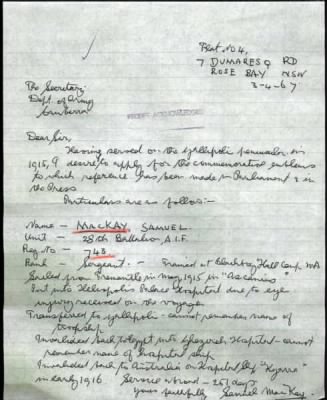 Flat No 4,
7 DUMARESQ RD
ROSE BAY NSW
3-4-67
The Secretary
Dept. of Army
Canberra
RECEIPT ACKNOWLEDGED
Dear Sir,
Having served on the Gallipoli peninsular in
1915, I desire to apply for the commemorative emblems
to which reference has been made in Parliament & in
the Press
Particulars are as follows:-
Name - MACKAY, SAMUEL.
Unit - 28th Battalion A.I.F.
Reg No - 748
Rank - Sergeant. - Trained at Blackboy Hill Camp. WA
Sailed from Fremantle in may 1915 in "Ascanius"
Put into Heliopolis Palace Hospital due to eye
injury received on the voyage
Transferred to Gallipoli - cannot remember name of
troopship
Invalided back to Egypt into Ghezireh Hospital - cannot
remember name of hospital ship
Invalided back to Australia on Hospital ship "Kyarra"
in early 1916 Service abroad - 251 days
Yours faithfully Samuel MacKay.